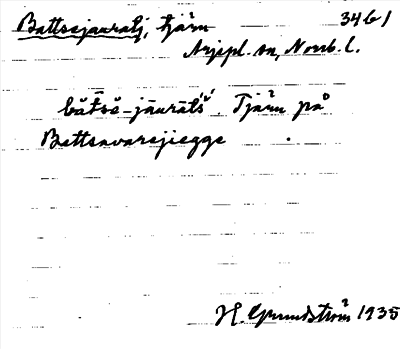 Battsejauratj, tjärn 34 b 1
Arjepl. sn, Norrb. l.
băt̄sē-jāurātś. Tjärn på
Battsavarejiegge.
H. Grundström 1935